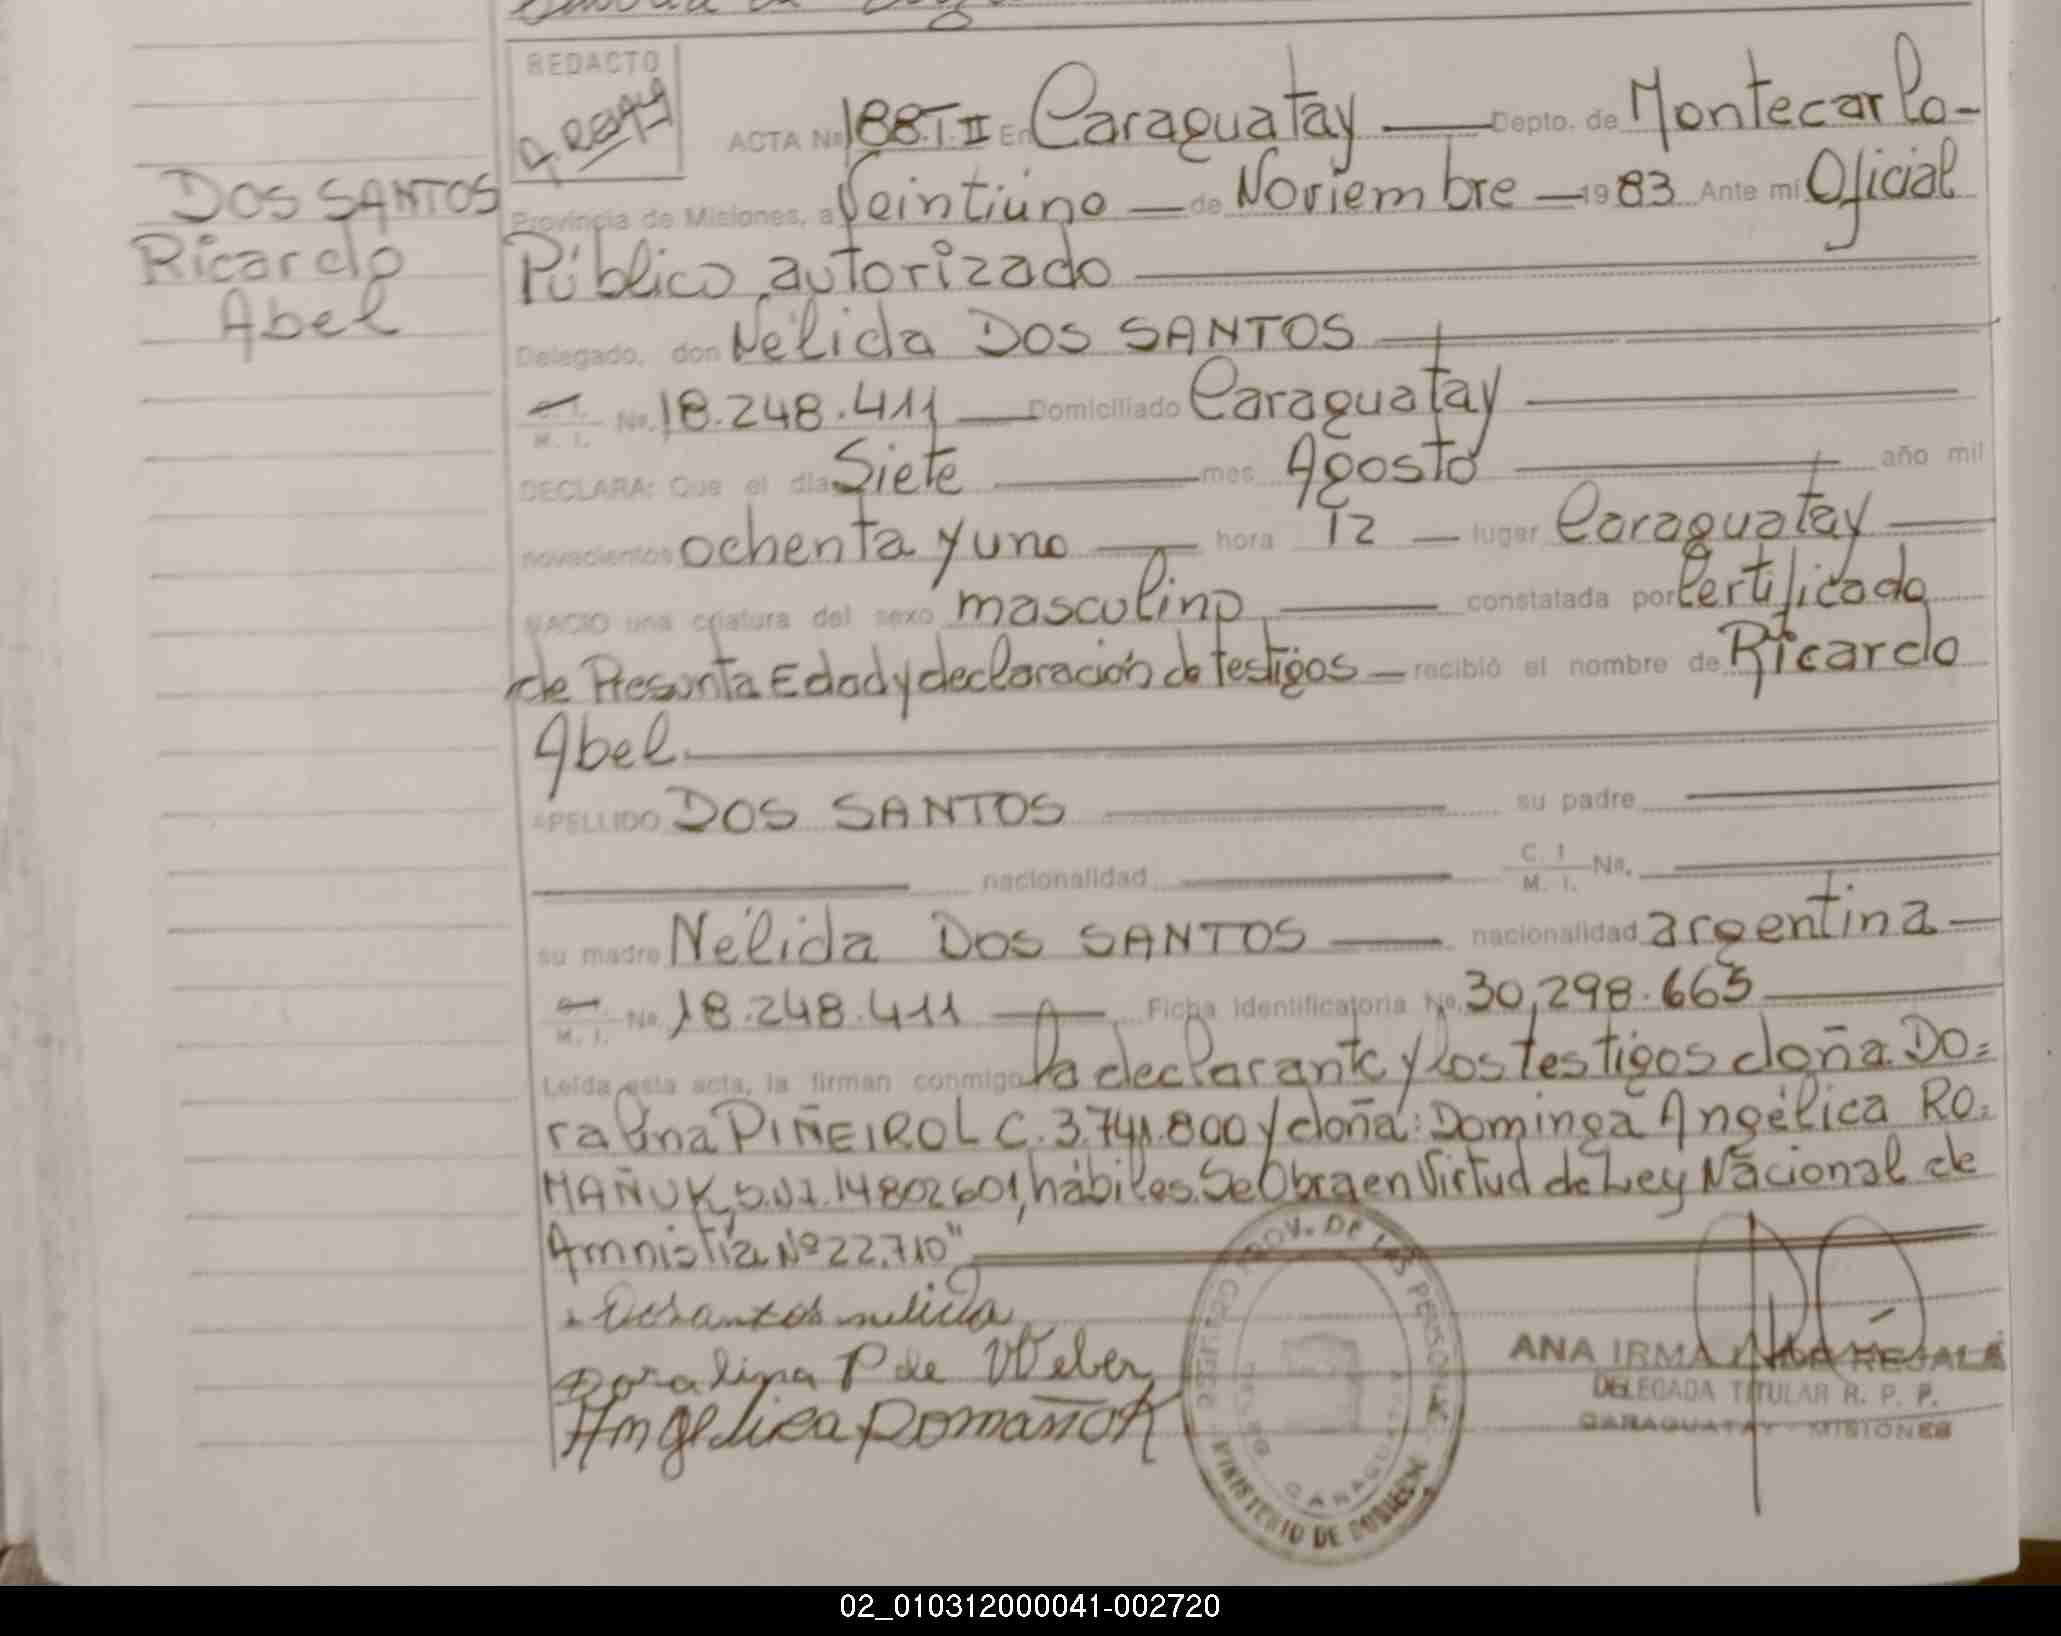 REDACTO
ACTA Nº 188.T.II En Caraguatay — Depto. de Montecarlo-
DOS SANTOS
Ricardo
Abel
Provincia de Misiones, a Veintiúno — de Noviembre — 1983 Ante mi Oficial
Público autorizado
Delegado, don Nélida DOS SANTOS
M. I. No. 18.248.411 — Domiciliado Caraguatay
DECLARA: Que el día Siete — mes Agosto — año mil
novecientos ochenta y uno — hora 12 — lugar Caraguatay
NACIO una criatura del sexo masculino — constatada por Certificado
de Presunta Edad y declaración de testigos — recibió el nombre de Ricardo
Abel.
APELLIDO DOS SANTOS — su padre
nacionalidad — C. I. M. I. No.
su madre Nélida DOS SANTOS — nacionalidad argentina —
M. I. No. 18.248.411 — Ficha Identificatoria No. 30,298.665
Leída esta acta, la firman conmigo la declarante y los testigos doña DO=
ralina PIÑEIRO L C. 3.741.800 y doña: Dominga Angélica RO=
MAÑUK, D.N.I. 14802601, hábiles. Se Obra en Virtud de Ley Nacional de
Amnistía Nº 22.710"
Dosantos nelida
Doralina P de Weber
Angelica Romañok
REGISTRO PROV. DE LAS PERSONAS
MINISTERIO DE GOBIERNO
CARAGUATAY
ANA IRMA
DELEGADA TITULAR R. P. P.
CARAGUATAY - MISIONES
02_010312000041-002720